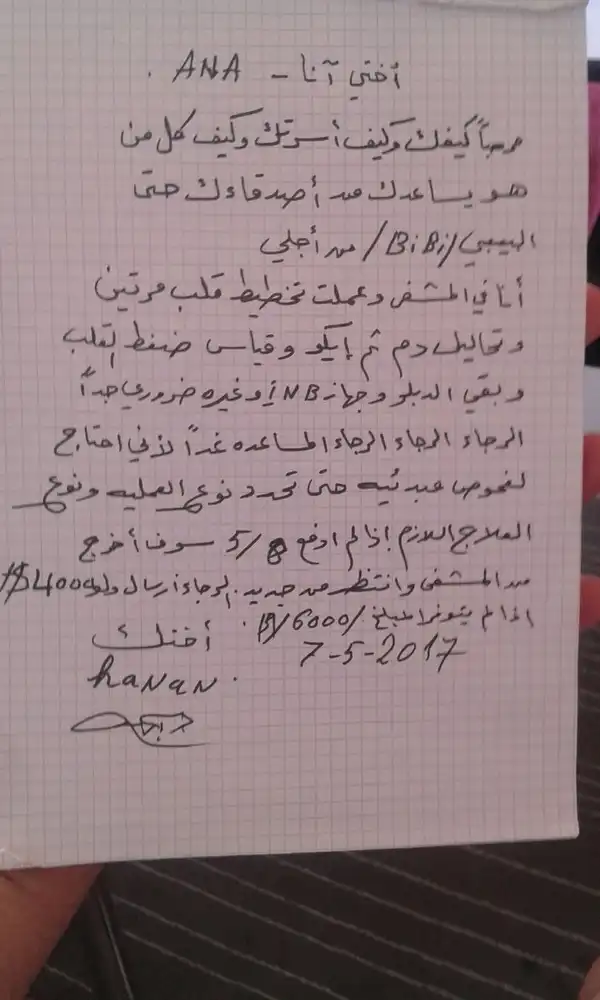 أختي آنا - ANA .
مرحباً كيفك وكيف أسرتك وكيف كل من
هو يساعدك من أصدقاءك حتى
البيبي/BiBi/ من أجلي
أنا في المشفى وعملت تخطيط قلب مرتين
وتحاليل دم ثم إيكو وقياس ضغط القلب
وبقي الدبلر وجهاز NB أو غيره ضروري جداً
الرجاء الرجاء الرجاء المساعده غداً لأني احتاج
لفحوص مبدئيه حتى تحدد نوع العمليه ونوع
العلاج اللازم إذا لم ادفع 8/5 سوف أخرج
من المشفى وانتظر من جديد. الرجاء أرسال ولو 4000$/
اذا لم يتوفر المبلغ /6000/$ .
أختك
7-5-2017
haNaN .